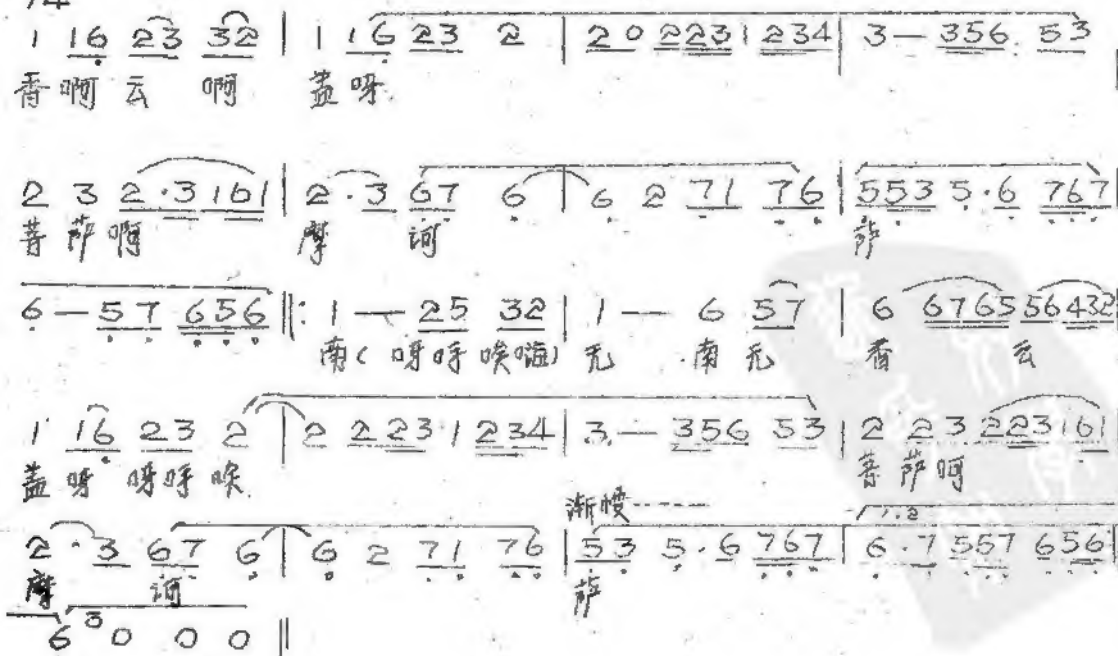 1 16 23 32 | 1 16 23 2 | 2 0 2231 234 | 3 — 356 53 |
香 啊 云 啊 盖 呀
2 3 2·3161 | 2·3 67 6 | 6 2 71 76 | 553 5·6 767 |
菩 萨 啊 摩 诃 萨
6 — 57 656 ‖: 1 — 25 32 | 1 — 6 57 | 6 6765 56432 |
南(呀呼唉嗨) 无 南 无 香 云
1 16 23 2 | 2 2231 234 | 3 — 356 53 | 2 2 3 223161 |
盖 呀 呀呼 唉 菩 萨 呵
渐慢
2·3 67 6 | 6 2 71 76 | 53 5·6 767 | 6·7 557 656 |
摩 诃 萨
6 0 0 0 ‖